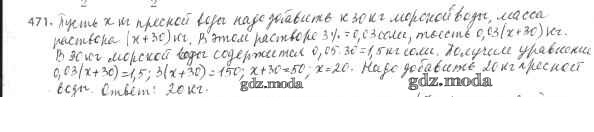 471. Пусть x кг пресной воды надо добавить к 30 кг морской воды, масса
раствора (x+30) кг. В этом растворе 3% = 0,03 соли, то есть 0,03(x+30) кг.
В 30 кг морской воды содержится 0,05·30=1,5 кг соли. Получим уравнение
0,03(x+30)=1,5; 3(x+30)=150; x+30=50; x=20. Надо добавить 20 кг пресной
воды. Ответ: 20 кг.
gdz.moda
gdz.moda